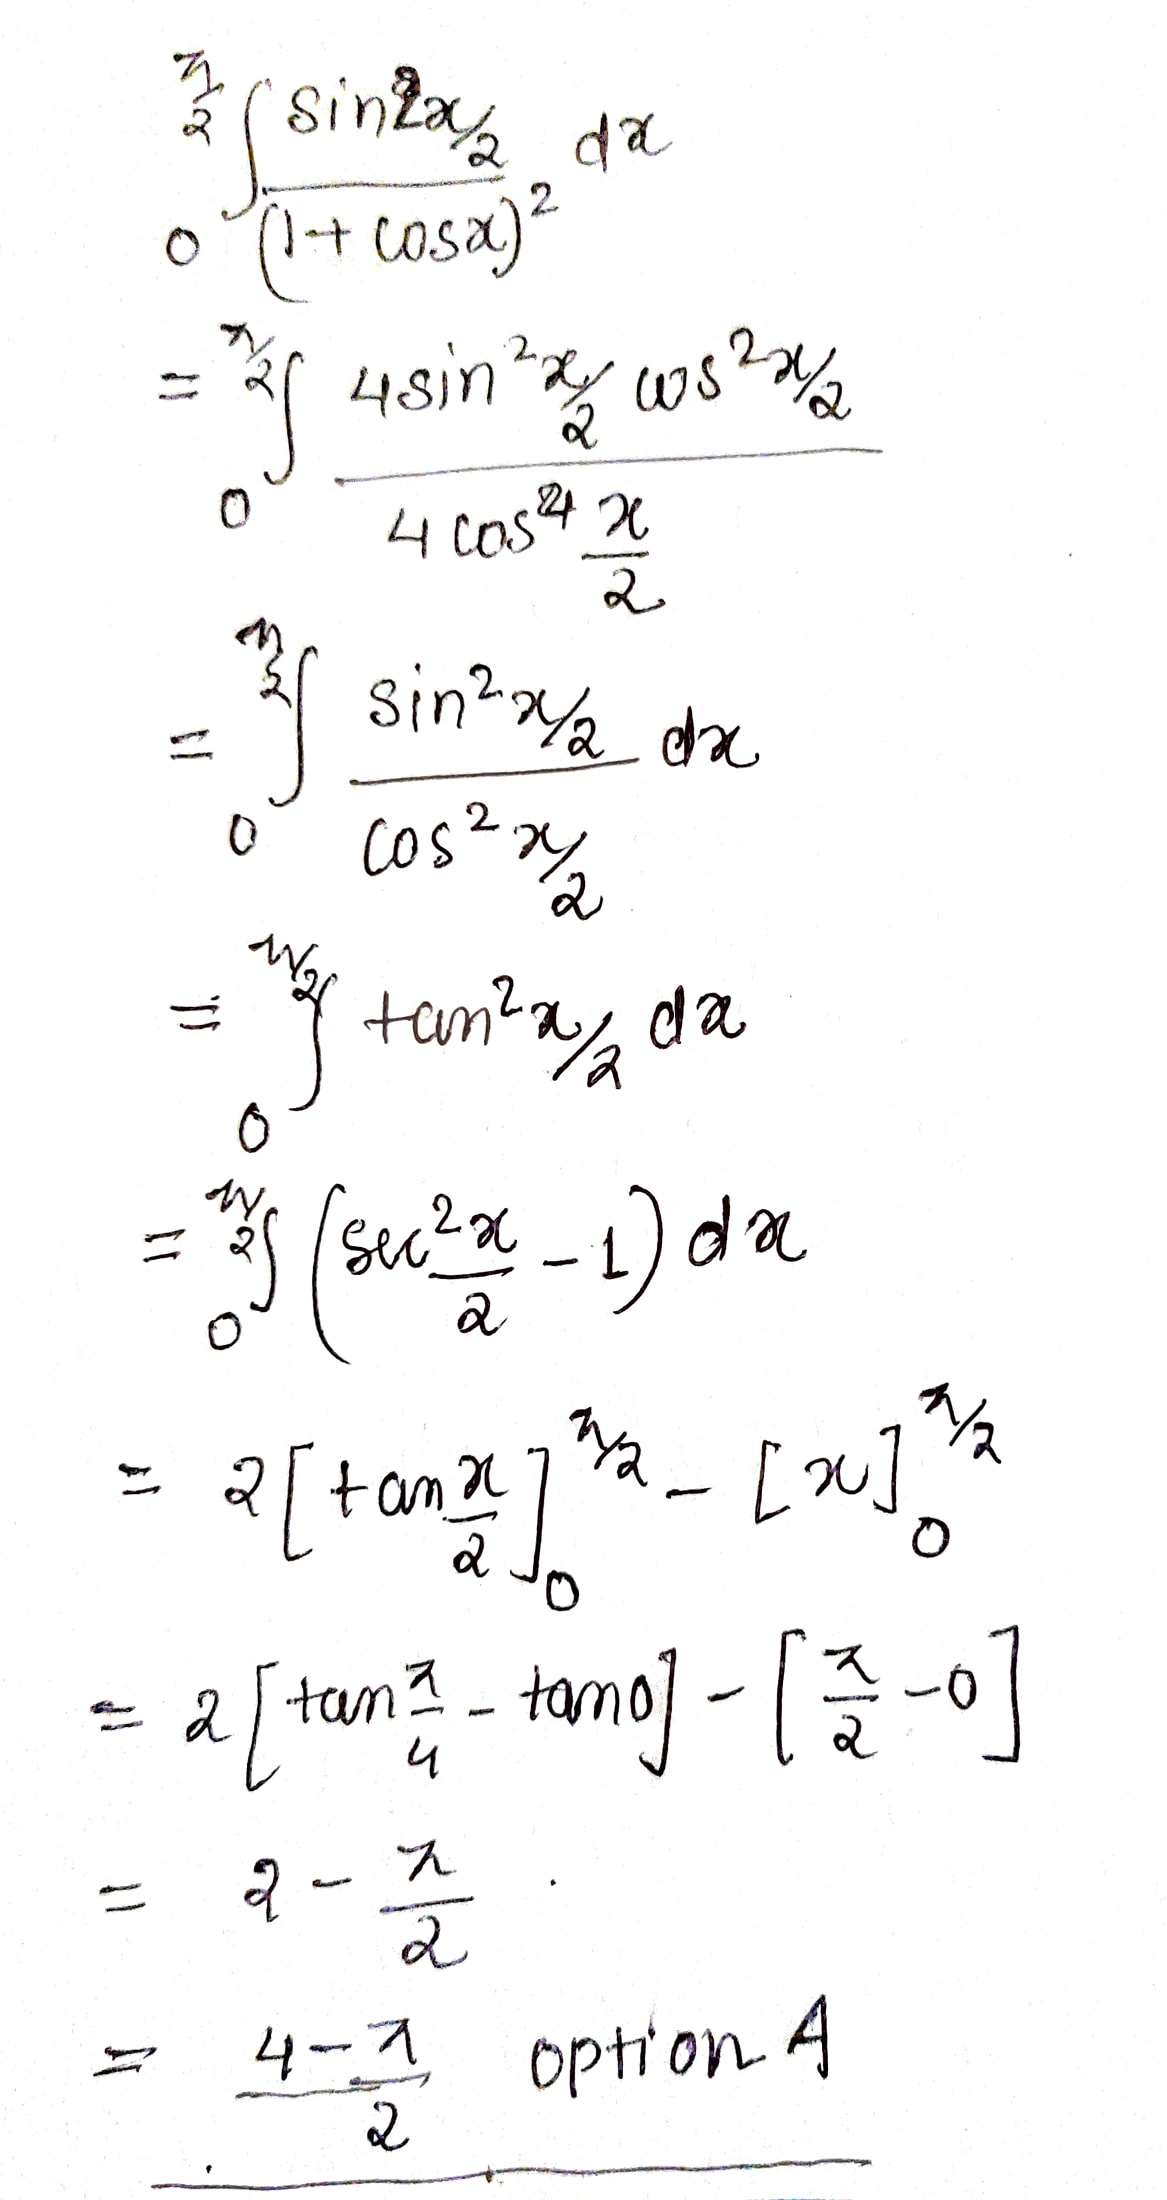 π/2 ∫ 0 sin2x/2 / (1+cosx)² dx
= π/2 ∫ 0 4sin²x/2 cos²x/2 / 4cos⁴ x/2
= π/2 ∫ 0 sin²x/2 / cos²x/2 dx
= π/2 ∫ 0 tan²x/2 dx
= π/2 ∫ 0 (sec²x/2 - 1) dx
= 2[tan x/2]₀^π/2 - [x]₀^π/2
= 2[tan π/4 - tan0] - [π/2 - 0]
= 2 - π/2 .
= 4-π/2 option A